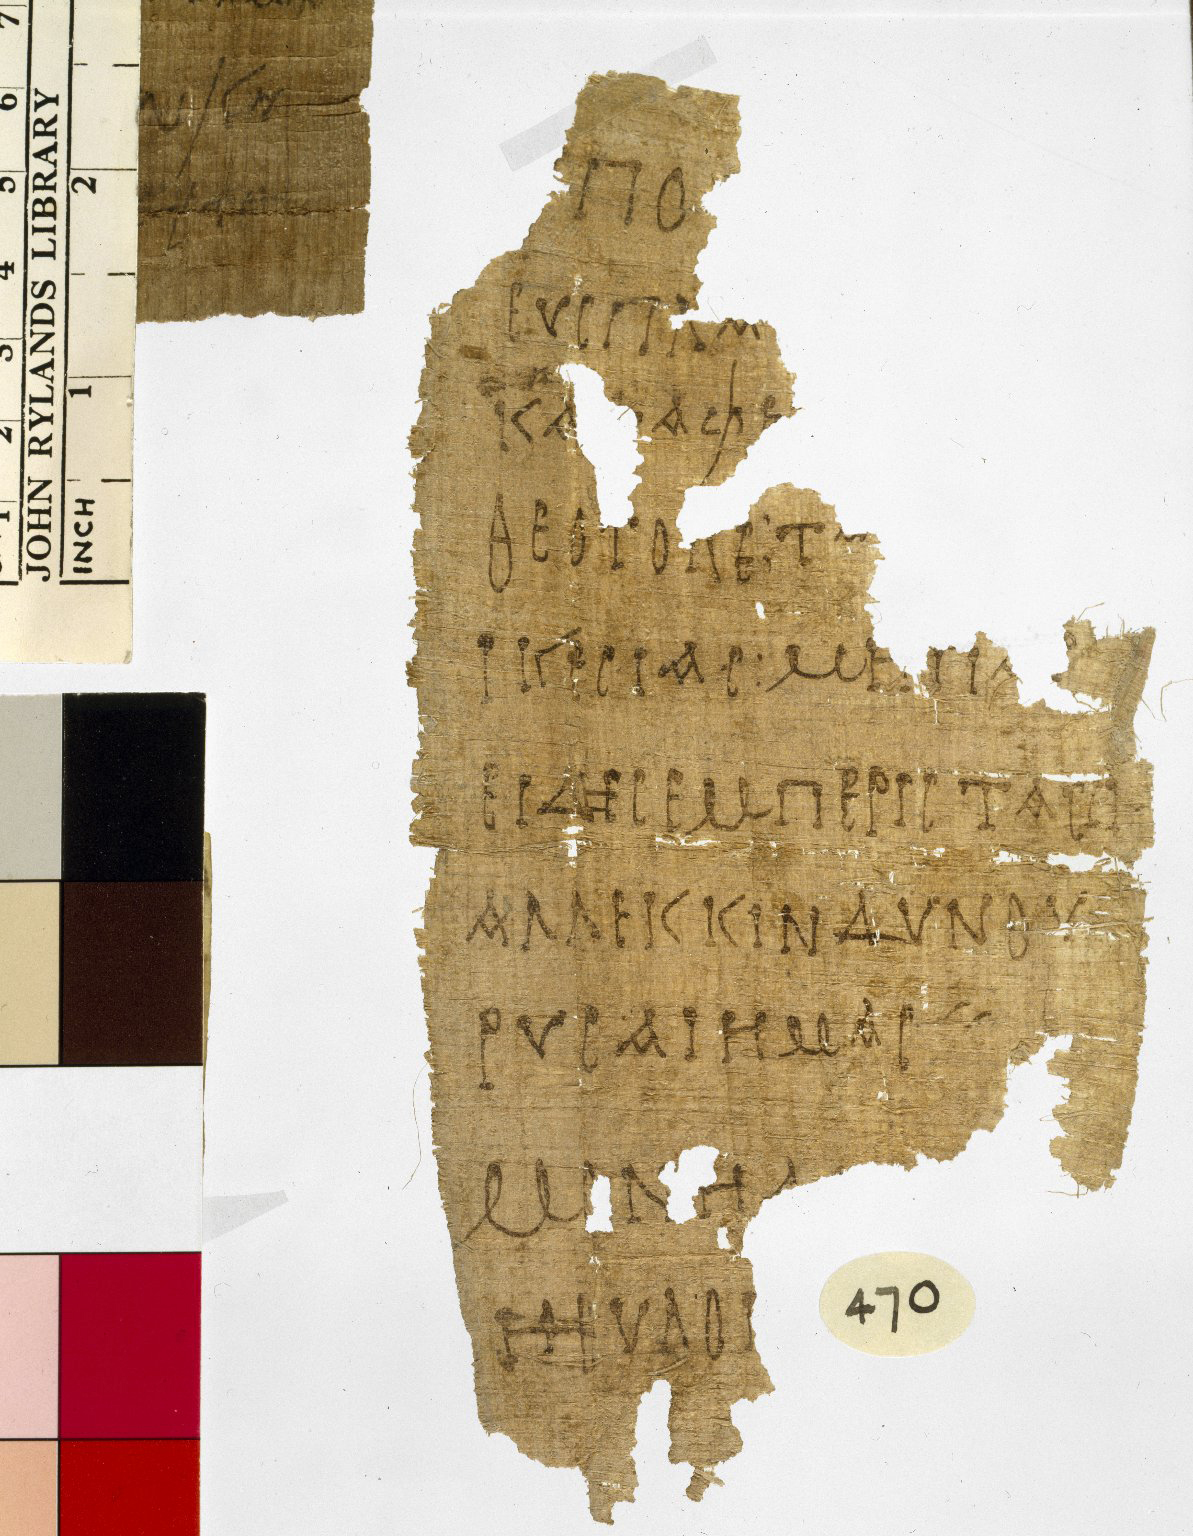 7
6
5
4
3
2
1
2
1
JOHN RYLANDS LIBRARY
INCH
ΠΟ
ΕΥCΠΛ
ΚΑ ΑΦΕ
ΘΕΟΤΟΚΕ·Τ
ΙΚΕCΙΑC:ΜΗΠΑ
ΕΙΔΗCΕΜΠΕΡΙCΤΑCΙ
ΑΛΛΕΚΚΙΝΔΥΝΟΥ
ΡΥCΑΙΗΜΑC
ΜΟΝΗ
ΗΕΥΛΟ
470